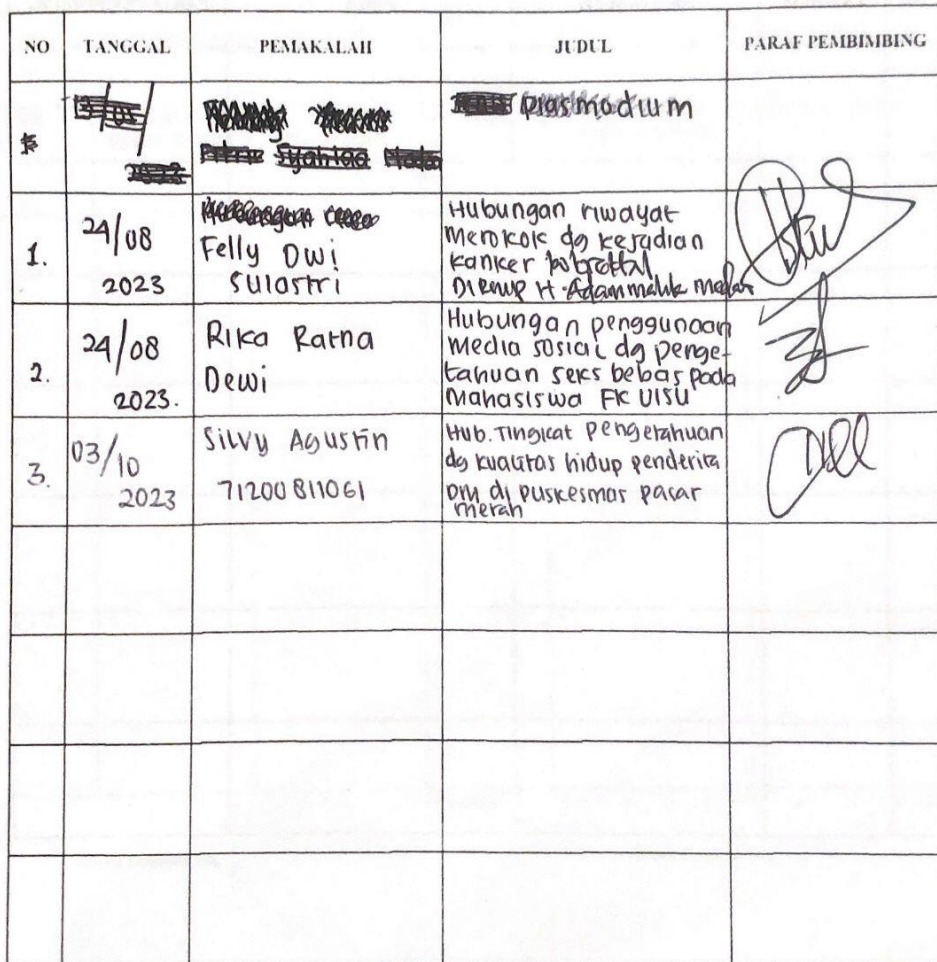 NO TANGGAL PEMAKALAH JUDUL PARAF PEMBIMBING
Plasmodium
Syahida
1. 24/08 2023 Felly Dwi Sulastri
Hubungan riwayat
merokok dg kejadian
kanker kolorektal
Di RSUP H. Adam malik medan
2. 24/08 2023. Rika Ratna Dewi
Hubungan penggunaan
Media sosial dg penge-
tahuan seks bebas pada
Mahasiswa FK UISU
3. 03/10 2023 Silvy Agustin
71200811061
Hub. Tingkat Pengetahuan
dg kualitas hidup penderita
DM di puskesmas pasar
merah